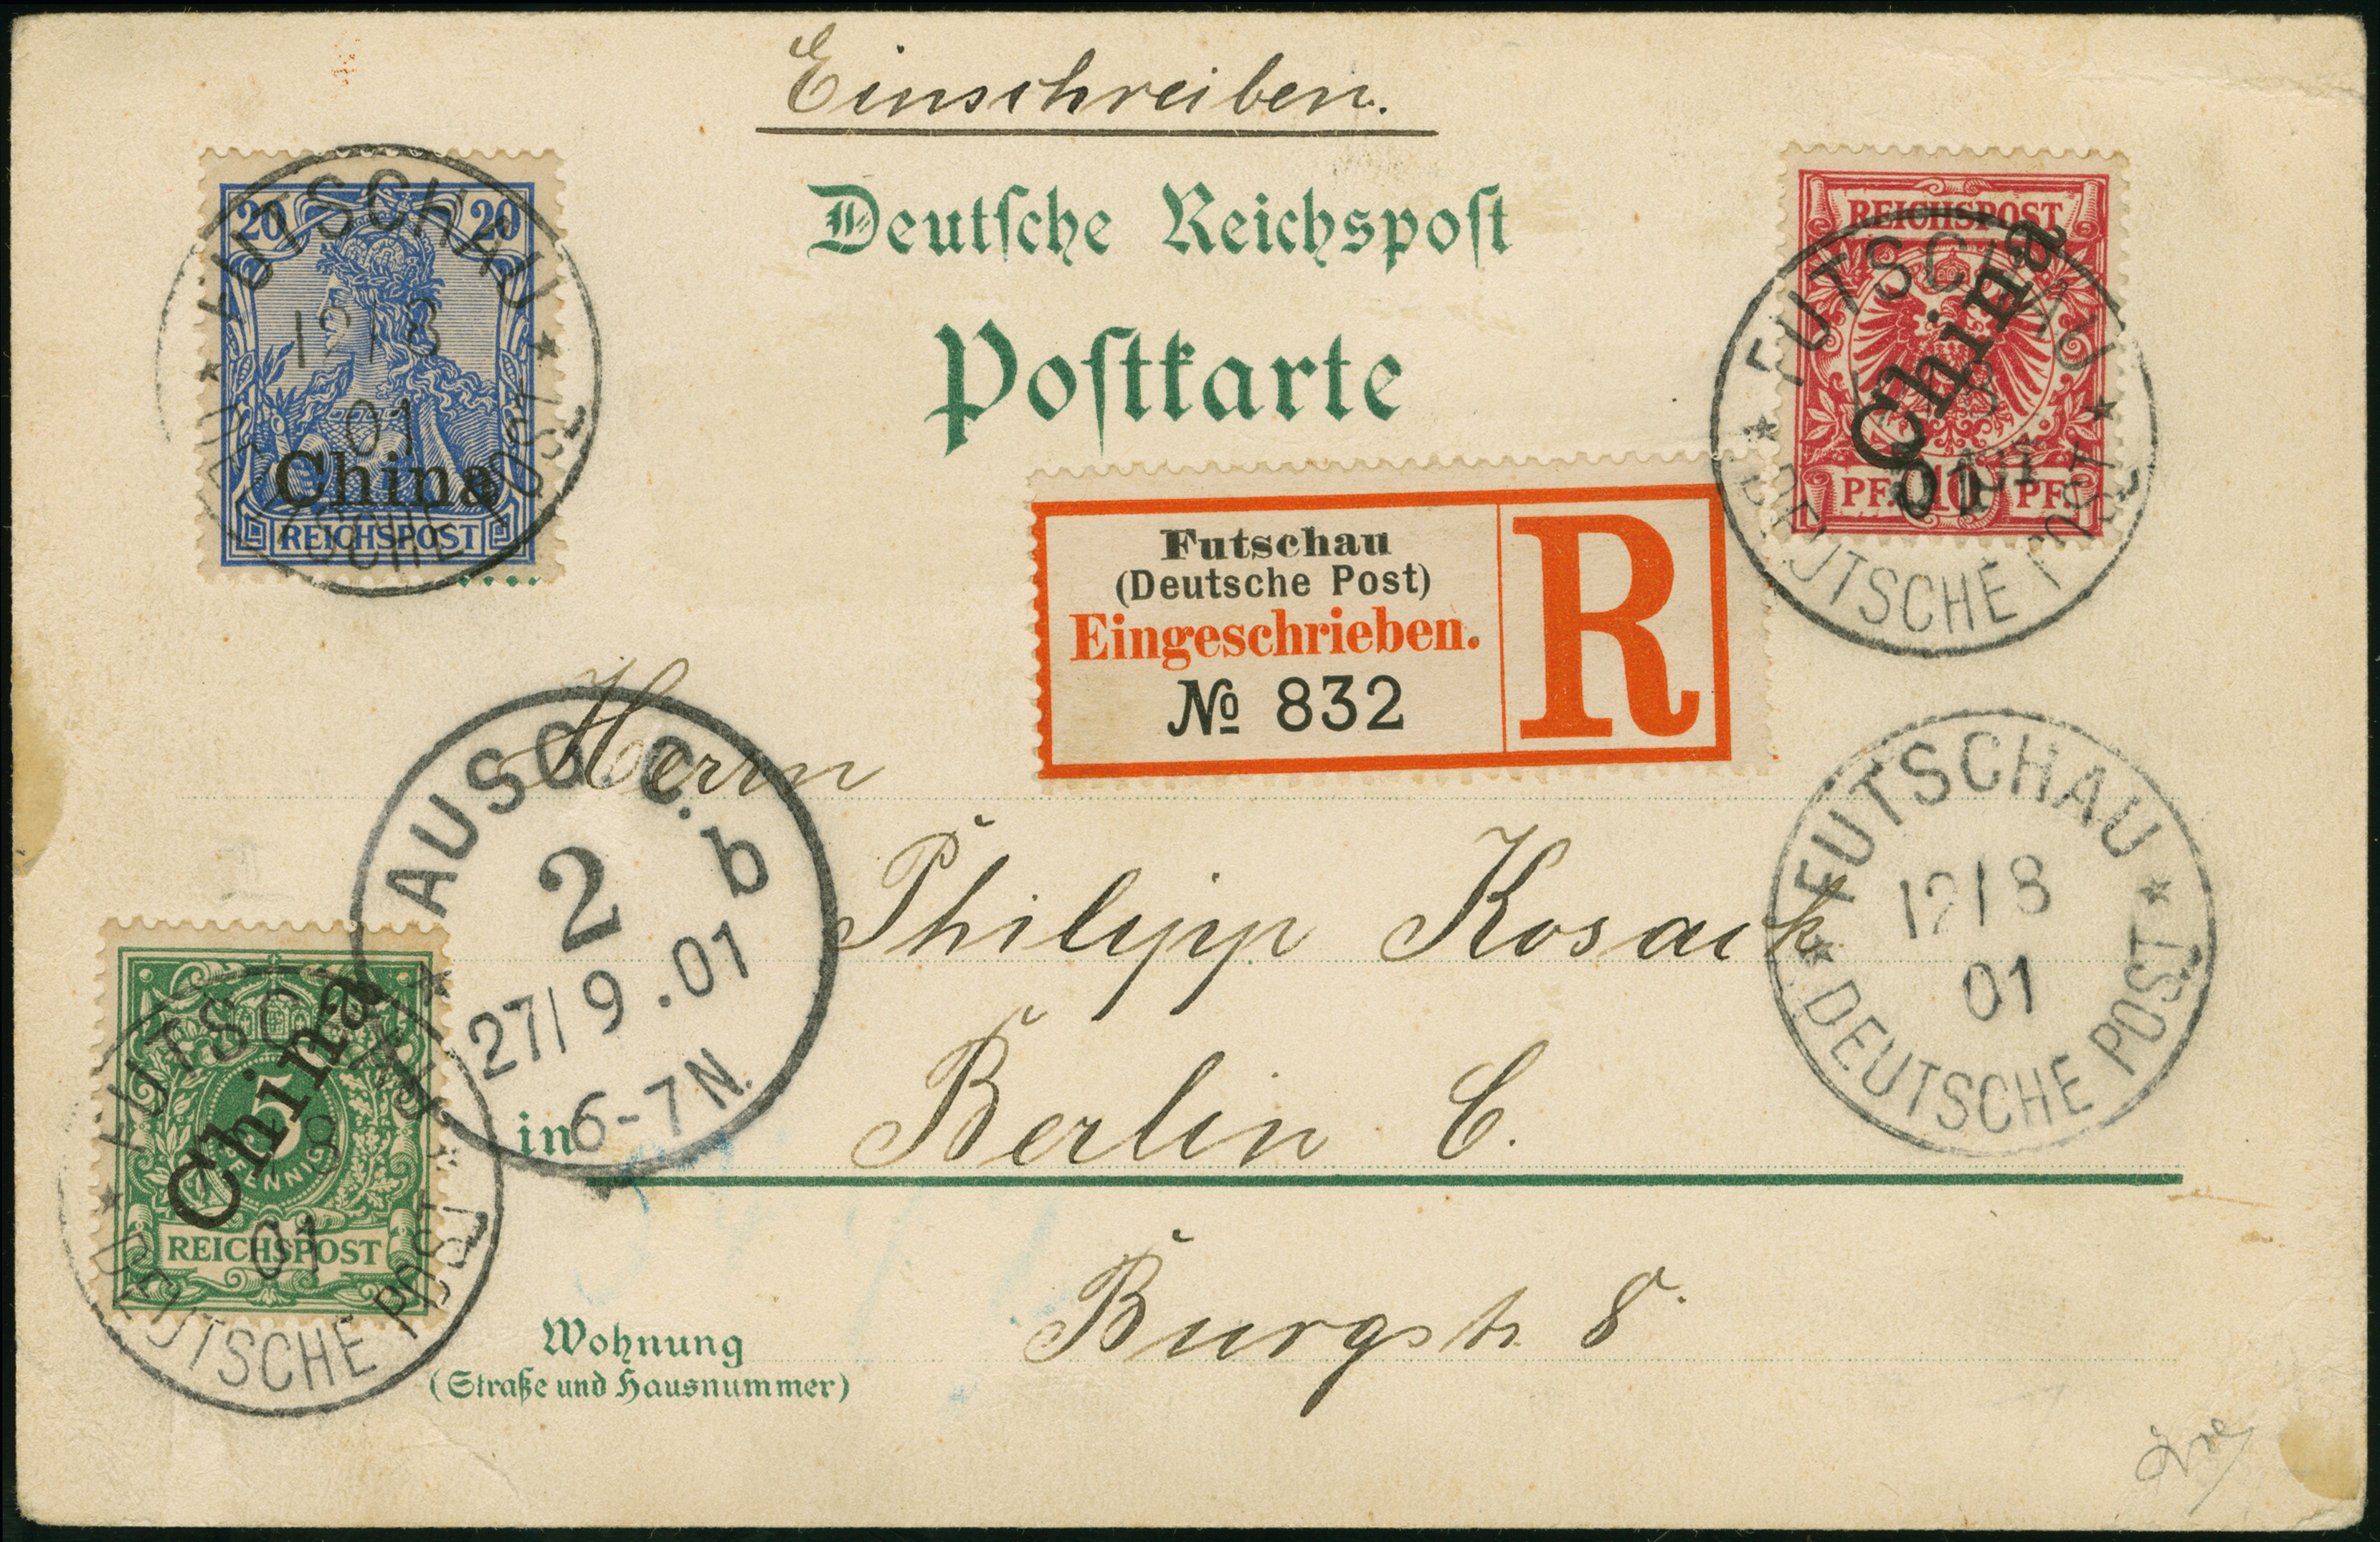 Einschreiben.
Deutsche Reichspost
Postkarte
20 20
China
REICHSPOST
FUTSCHAU
12/8
01
DEUTSCHE POST
REICHSPOST
China
PF. 10 PF.
FUTSCHAU
01
DEUTSCHE POST
Futschau
(Deutsche Post)
Eingeschrieben.
№ 832
R
Herrn
AUSG. C. b
2
27/9.01
6-7N.
FUTSCHAU
12/8
01
DEUTSCHE POST
Philipp Kosack
in Berlin C.
China
5
PFENNIG
REICHSPOST
FUTSCHAU
8
01
DEUTSCHE POST
Burgstr. 8.
Wohnung
(Straße und Hausnummer)